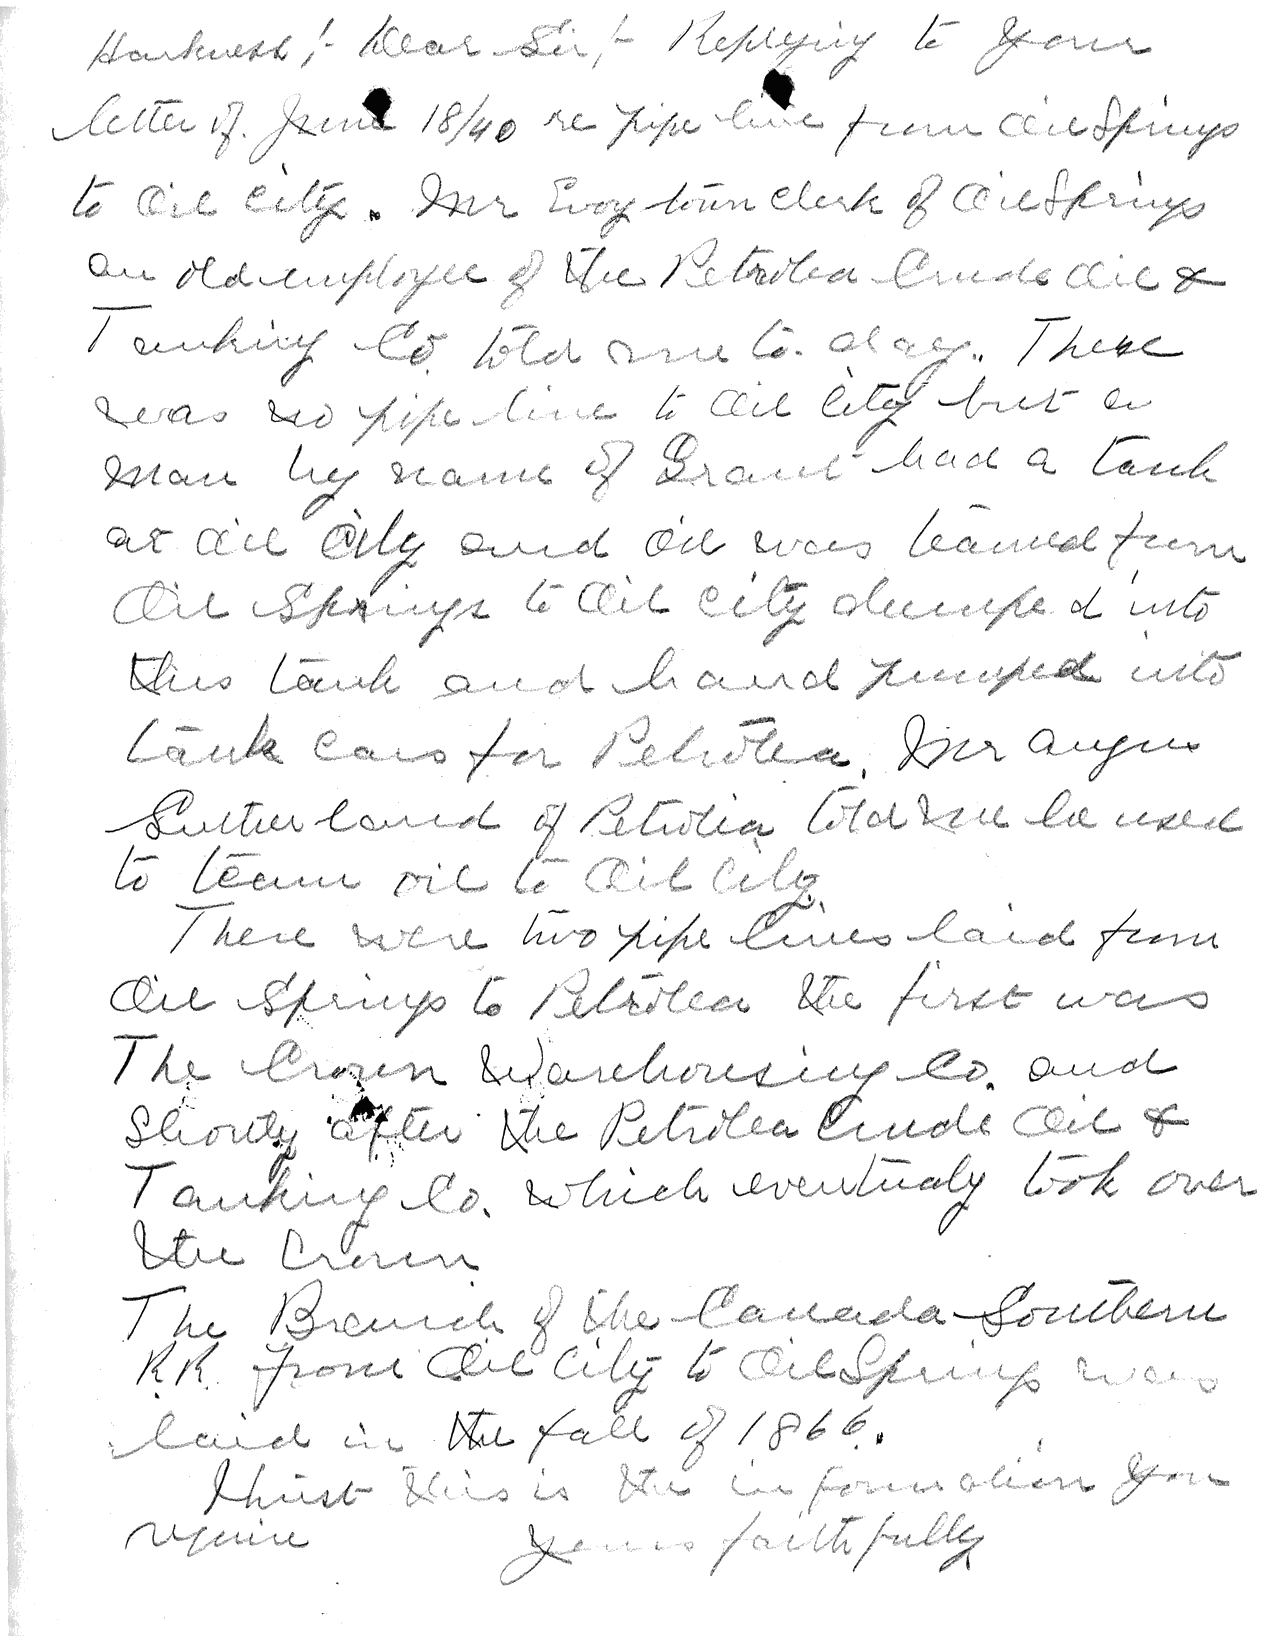 Harkness,:- Dear Sir,:- Replying to your
letter of June 18/40 re pipe line from Oil Springs
to Oil City. Mr Evoy town clerk of Oil Springs
an old employee of the Petrolea Crude Oil &
Tanking Co. told me to-day. There
was no pipe line to Oil City but a
man by name of Grant had a tank
at Oil City and oil was teamed from
Oil Springs to Oil City dumped into
this tank and hand pumped into
tank cars for Petrolea. Mr Angus
Sutherland of Petrolia told me he used
to team oil to Oil City.
There were two pipe lines laid from
Oil Springs to Petrolea the first was
The Crown Warehousing Co. and
shortly after the Petrolea Crude Oil &
Tanking Co. which eventualy took over
the Crown
The Branch of the Canada Southern
R.R. from Oil City to Oil Springs was
laid in the fall of 1866.
I trust this is the information you
require Yours faithfully